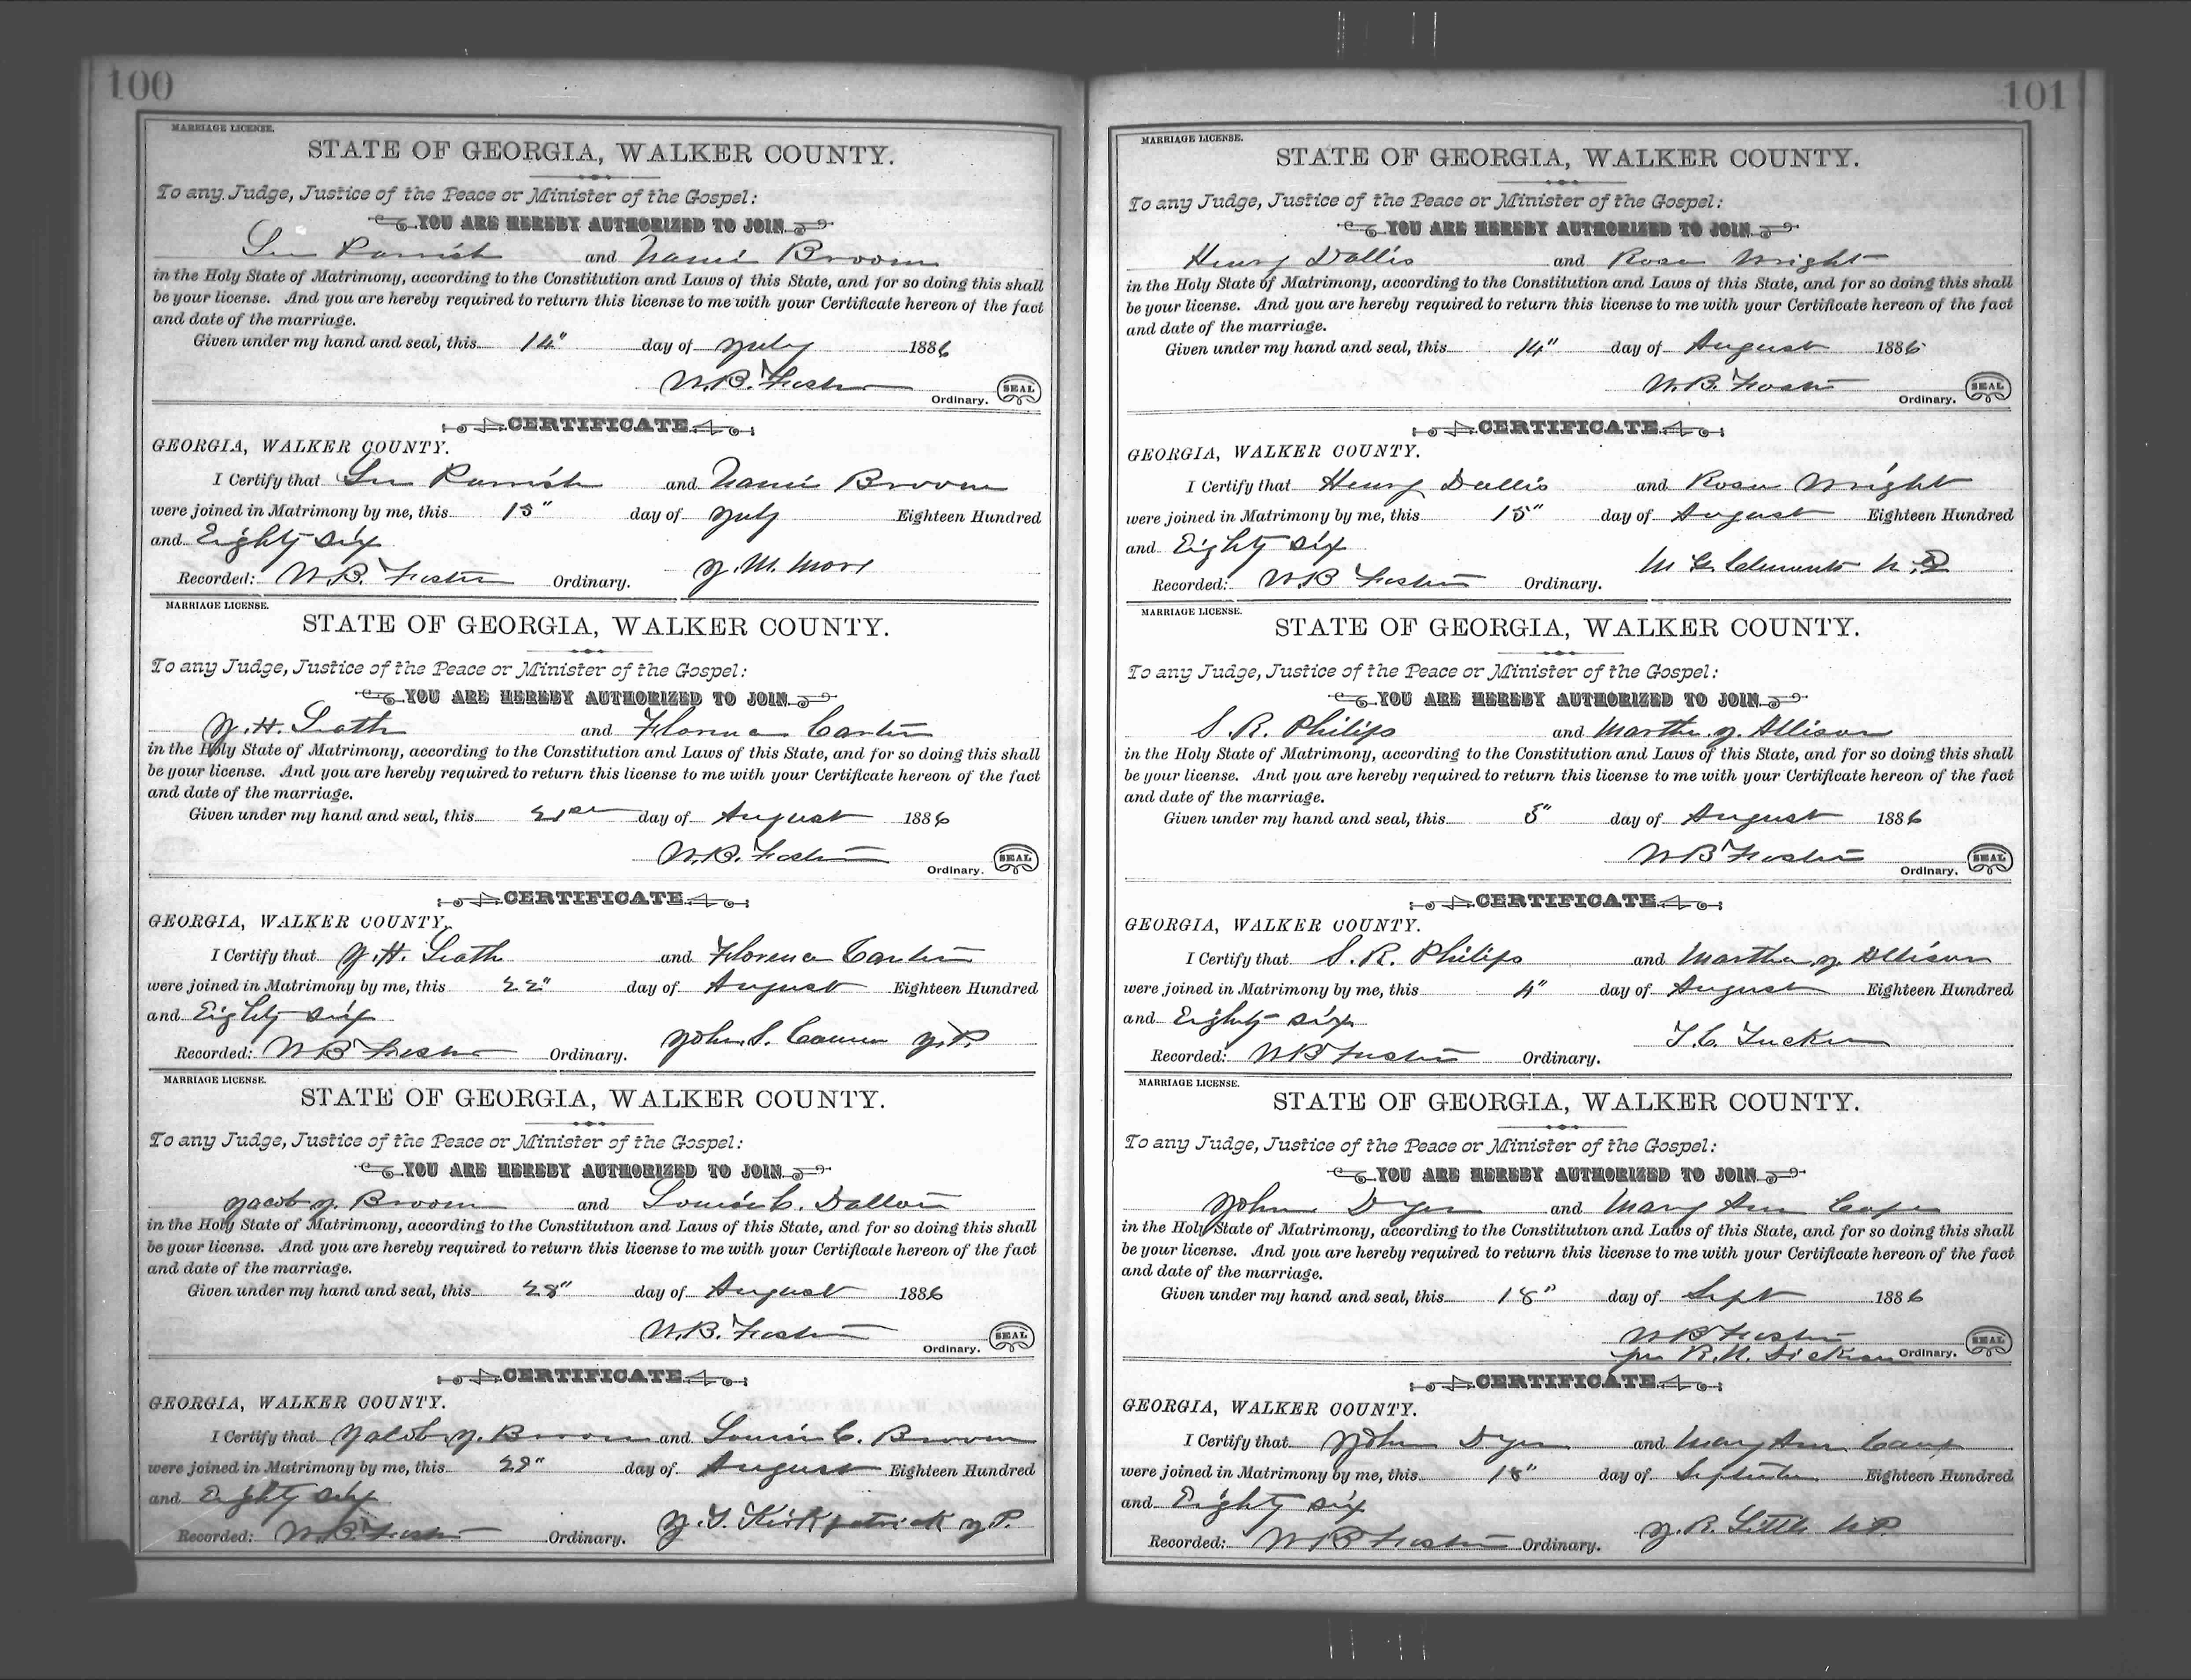 100
MARRIAGE LICENSE.
STATE OF GEORGIA, WALKER COUNTY.
To any Judge, Justice of the Peace or Minister of the Gospel:
YOU ARE HEREBY AUTHORIZED TO JOIN
Parrish and Broom
in the Holy State of Matrimony, according to the Constitution and Laws of this State, and for so doing this shall
be your license. And you are hereby required to return this license to me with your Certificate hereon of the fact
and date of the marriage.
Given under my hand and seal, this 14" day of July 1886
W.B. Foster
Ordinary. SEAL
CERTIFICATE
GEORGIA, WALKER COUNTY.
I Certify that Parrish and Broom
were joined in Matrimony by me, this 15" day of July Eighteen Hundred
and Eighty six
J. M.
Recorded: W.B. Foster Ordinary.
MARRIAGE LICENSE.
STATE OF GEORGIA, WALKER COUNTY.
To any Judge, Justice of the Peace or Minister of the Gospel:
YOU ARE HEREBY AUTHORIZED TO JOIN
J. H. Leath and Florence Carter
in the Holy State of Matrimony, according to the Constitution and Laws of this State, and for so doing this shall
be your license. And you are hereby required to return this license to me with your Certificate hereon of the fact
and date of the marriage.
Given under my hand and seal, this 21st day of August 1886
W.B. Foster
Ordinary. SEAL
CERTIFICATE
GEORGIA, WALKER COUNTY.
I Certify that J. H. Leath and Florence Carter
were joined in Matrimony by me, this 22" day of August Eighteen Hundred
and Eighty six
John S. J.P.
Recorded: W B Foster Ordinary.
MARRIAGE LICENSE.
STATE OF GEORGIA, WALKER COUNTY.
To any Judge, Justice of the Peace or Minister of the Gospel:
YOU ARE HEREBY AUTHORIZED TO JOIN
Jacob J. Broom and C. Dalton
in the Holy State of Matrimony, according to the Constitution and Laws of this State, and for so doing this shall
be your license. And you are hereby required to return this license to me with your Certificate hereon of the fact
and date of the marriage.
Given under my hand and seal, this 28" day of August 1886
W.B. Foster
Ordinary. SEAL
CERTIFICATE
GEORGIA, WALKER COUNTY.
I Certify that Jacob J. Broom and C. Broom
were joined in Matrimony by me, this 29" day of August Eighteen Hundred
and Eighty six
Kirkpatrick J P.
Recorded: W.B. Foster Ordinary.
101
MARRIAGE LICENSE.
STATE OF GEORGIA, WALKER COUNTY.
To any Judge, Justice of the Peace or Minister of the Gospel:
YOU ARE HEREBY AUTHORIZED TO JOIN
Henry Dallis and Rosa Wright
in the Holy State of Matrimony, according to the Constitution and Laws of this State, and for so doing this shall
be your license. And you are hereby required to return this license to me with your Certificate hereon of the fact
and date of the marriage.
Given under my hand and seal, this 14" day of August 1886
W.B. Foster
Ordinary. SEAL
CERTIFICATE
GEORGIA, WALKER COUNTY.
I Certify that Henry Dallis and Rosa Wright
were joined in Matrimony by me, this 15" day of August Eighteen Hundred
and Eighty six
M G. Clements N.P.
Recorded: W.B Foster Ordinary.
MARRIAGE LICENSE.
STATE OF GEORGIA, WALKER COUNTY.
To any Judge, Justice of the Peace or Minister of the Gospel:
YOU ARE HEREBY AUTHORIZED TO JOIN
S. R. Philips and Martha J. Allison
in the Holy State of Matrimony, according to the Constitution and Laws of this State, and for so doing this shall
be your license. And you are hereby required to return this license to me with your Certificate hereon of the fact
and date of the marriage.
Given under my hand and seal, this 3" day of August 1886
W B Foster
Ordinary. SEAL
CERTIFICATE
GEORGIA, WALKER COUNTY.
I Certify that S. R. Philips and Martha J. Allison
were joined in Matrimony by me, this 4" day of August Eighteen Hundred
and Eighty six
T. C. Tucker
Recorded: W B Foster Ordinary.
MARRIAGE LICENSE.
STATE OF GEORGIA, WALKER COUNTY.
To any Judge, Justice of the Peace or Minister of the Gospel:
YOU ARE HEREBY AUTHORIZED TO JOIN
John Dyer and Mary Ann
in the Holy State of Matrimony, according to the Constitution and Laws of this State, and for so doing this shall
be your license. And you are hereby required to return this license to me with your Certificate hereon of the fact
and date of the marriage.
Given under my hand and seal, this 18" day of Sept 1886
W B Foster
per R.N. Dickson Ordinary. SEAL
CERTIFICATE
GEORGIA, WALKER COUNTY.
I Certify that John Dyer and Mary Ann
were joined in Matrimony by me, this 18" day of September Eighteen Hundred
and Eighty six
J. R. Little N.P.
Recorded: W B Foster Ordinary.